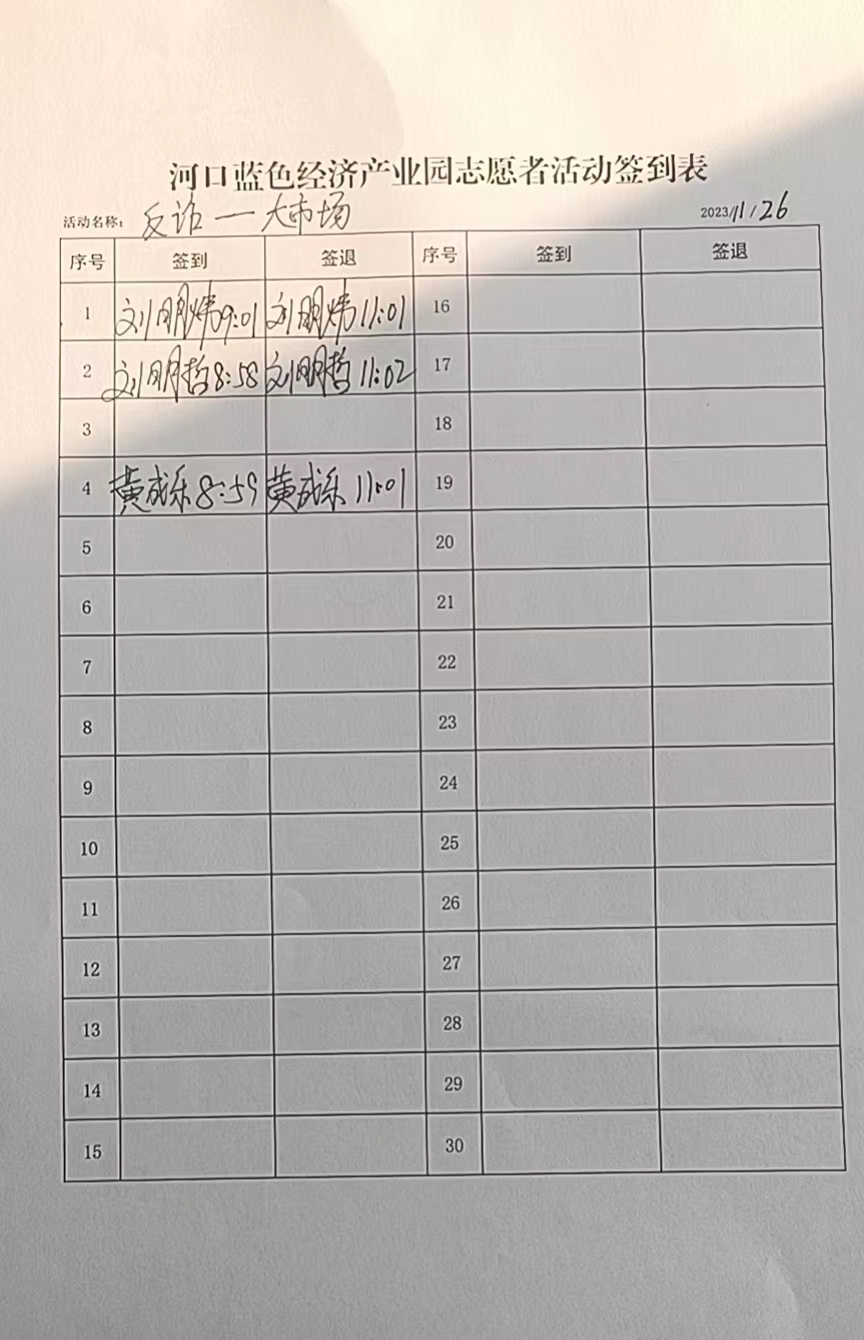 河口蓝色经济产业园志愿者活动签到表
活动名称: 反诈一大市场 2023/11/26
序号 签到 签退 序号 签到 签退
1 刘明炜9:01 刘明炜11:01 16
2 刘明哲8:58 刘明哲11:02 17
3 18
4 黄成乐8:59 黄成乐11:01 19
5 20
6 21
7 22
8 23
9 24
10 25
11 26
12 27
13 28
14 29
15 30